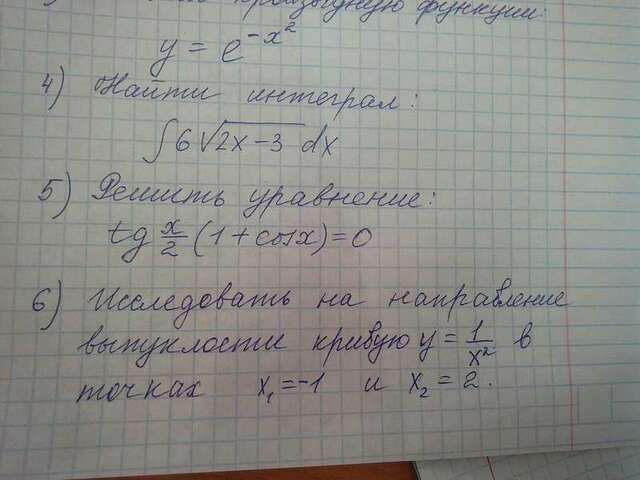 производную функции:
y = e^{-x^2}
4) Найти интеграл:
∫ 6√(2x-3) dx
5) Решить уравнение:
tg x/2 (1+cosx)=0
6) Исследовать на направление
выпуклости кривую y = 1/x^2 в
точках x₁=-1 и x₂=2.